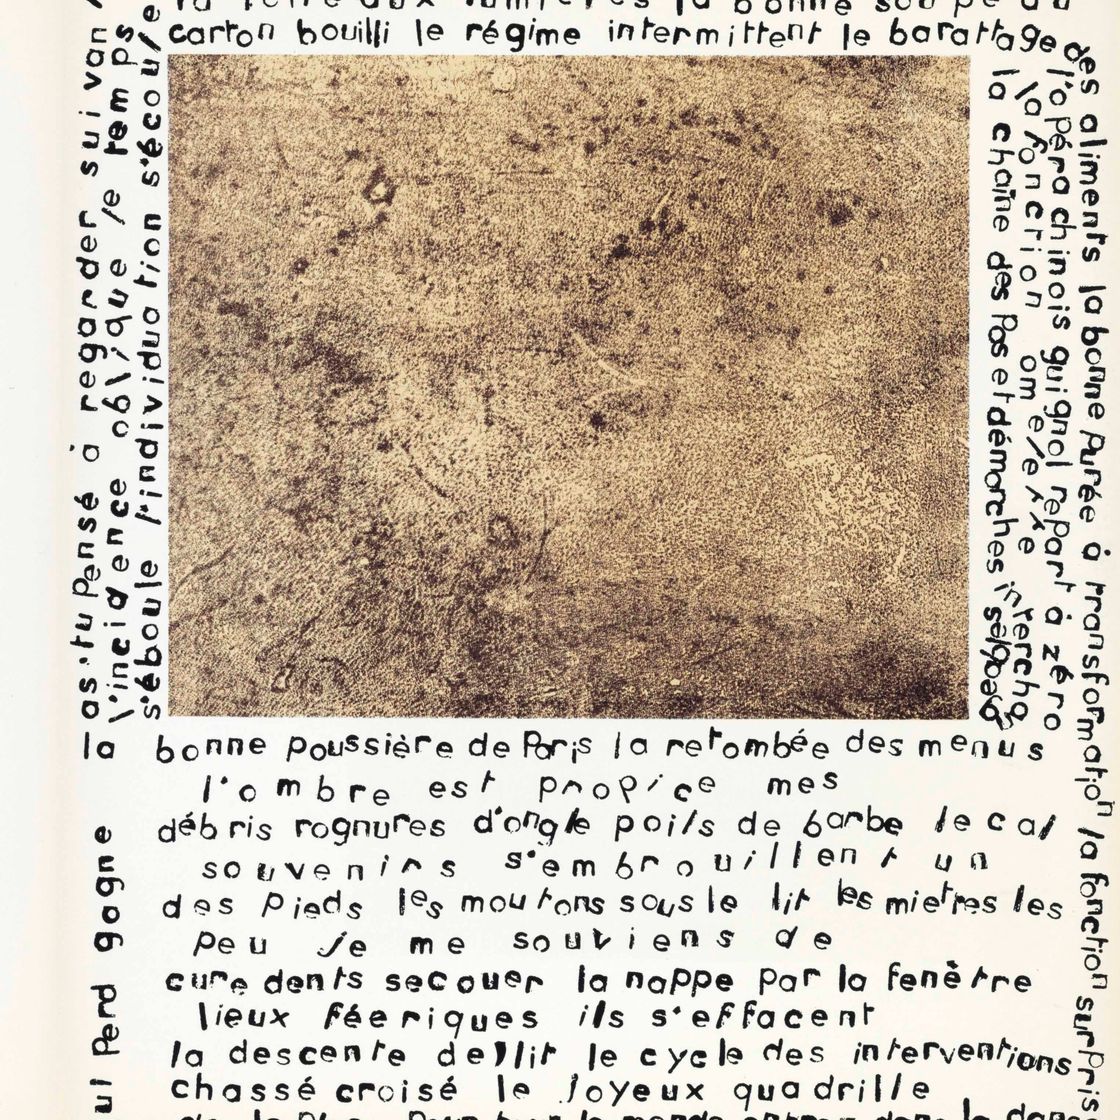 la bonne soupe au
carton bouilli le régime intermittent le barattage
des aliments la bonne purée à transformation la fonction surpris
l'opéra chinois guignol repart à zéro
la fonction omelette
la chaîne des pas et démarches
as-tu pensé à regarder suivan
l'incidence oblique le temps
s'éboule l'individuation s'écoule
la bonne poussière de Paris la retombée des menus
l'ombre est propice mes
débris rognures d'ongle poils de barbe le cal
souvenirs s'embrouillent un
des pieds les moutons sous le lit les miettes les
peu je me souviens de
cure dents secouer la nappe par la fenêtre
lieux féeriques ils s'effacent
la descente de lit le cycle des interventions
chassé croisé le joyeux quadrille
perd gagne